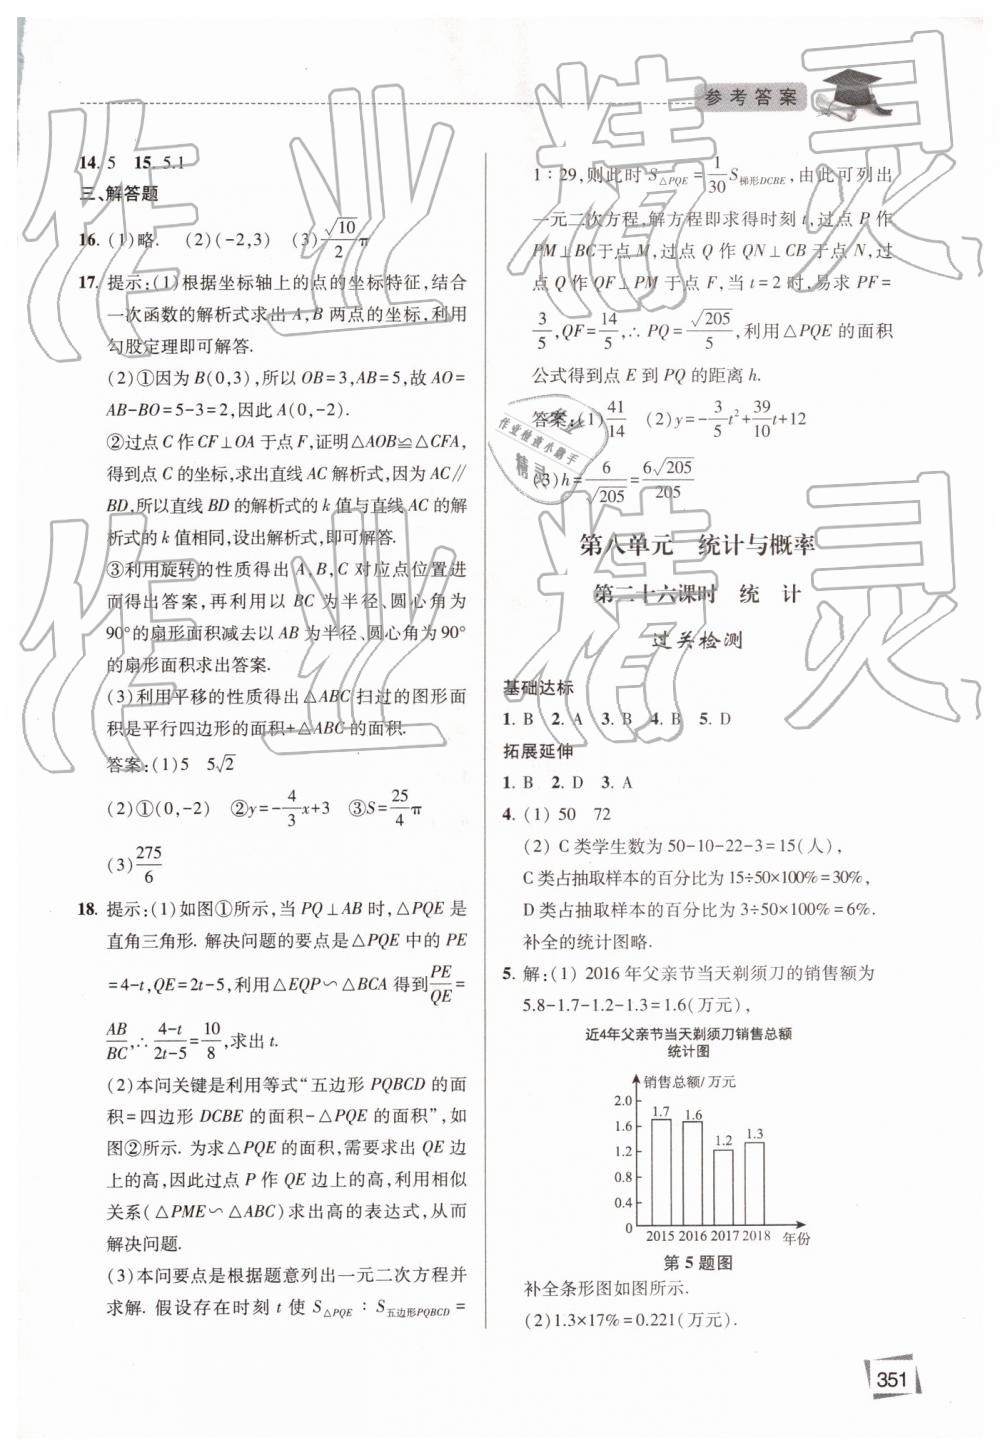 参考答案
14. 5 15. 5.1
三、解答题
16. (1)略. (2)(-2,3) (3)√10/2 π
17. 提示:(1)根据坐标轴上的点的坐标特征,结合
一次函数的解析式求出A,B两点的坐标,利用
勾股定理即可解答.
(2)①因为B(0,3),所以OB=3,AB=5,故AO=
AB-BO=5-3=2,因此A(0,-2).
②过点C作CF⊥OA于点F,证明△AOB≌△CFA,
得到点C的坐标,求出直线AC解析式,因为AC∥
BD,所以直线BD的解析式的k值与直线AC的解
析式的k值相同,设出解析式,即可解答.
③利用旋转的性质得出A,B,C对应点位置进
而得出答案,再利用以BC为半径、圆心角为
90°的扇形面积减去以AB为半径、圆心角为90°
的扇形面积求出答案.
(3)利用平移的性质得出△ABC扫过的图形面
积是平行四边形的面积+△ABC的面积.
答案:(1)5 5√2
(2)①(0,-2) ②y=-4/3 x+3 ③S=25/4 π
(3)275/6
18. 提示:(1)如图①所示,当PQ⊥AB时,△PQE是
直角三角形. 解决问题的要点是△PQE中的PE
=4-t,QE=2t-5,利用△EQP∽△BCA得到PE/QE=
AB/BC,∴(4-t)/(2t-5)=10/8,求出t.
(2)本问关键是利用等式“五边形PQBCD的面
积=四边形DCBE的面积-△PQE的面积”,如
图②所示. 为求△PQE的面积,需要求出QE边
上的高,因此过点P作QE边上的高,利用相似
关系(△PME∽△ABC)求出高的表达式,从而
解决问题.
(3)本问要点是根据题意列出一元二次方程并
求解. 假设存在时刻t使S△PQE∶S五边形PQBCD=
1∶29,则此时S△PQE=1/30 S梯形DCBE,由此可列出
一元二次方程,解方程即求得时刻t,过点P作
PM⊥BC于点M,过点Q作QN⊥CB于点N,过
点Q作QF⊥PM于点F,当t=2时,易求PF=
3/5,QF=14/5,∴PQ=√205/5,利用△PQE的面积
公式得到点E到PQ的距离h.
答案:(1)41/14 (2)y=-3/5 t²+39/10 t+12
(3)h=6/√205=6√205/205
第八单元 统计与概率
第二十六课时 统 计
过关检测
基础达标
1. B 2. A 3. B 4. B 5. D
拓展延伸
1. B 2. D 3. A
4. (1) 50 72
(2) C类学生数为50-10-22-3=15(人),
C类占抽取样本的百分比为15÷50×100%=30%,
D类占抽取样本的百分比为3÷50×100%=6%.
补全的统计图略.
5. 解:(1) 2016年父亲节当天剃须刀的销售额为
5.8-1.7-1.2-1.3=1.6(万元),
近4年父亲节当天剃须刀销售总额
统计图
销售总额/万元
2.0
1.6
1.2
0.8
0.4
0
1.7 1.6 1.2 1.3
2015 2016 2017 2018 年份
第5题图
补全条形图如图所示.
(2)1.3×17%=0.221(万元).
351
作业精灵
作业精灵
作业检查小助手
精灵